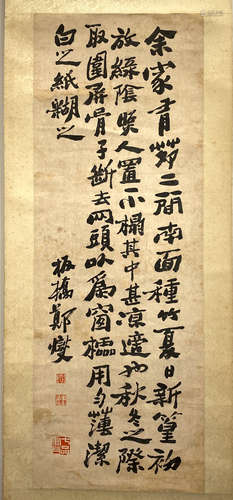 余家有茆二間南面種竹夏日新篁初
放綠陰照人置一小榻其中甚涼適也秋冬之際
取圍屏骨子斷去兩頭以爲窗櫺用勻薄潔
白之紙糊之
板橋鄭燮